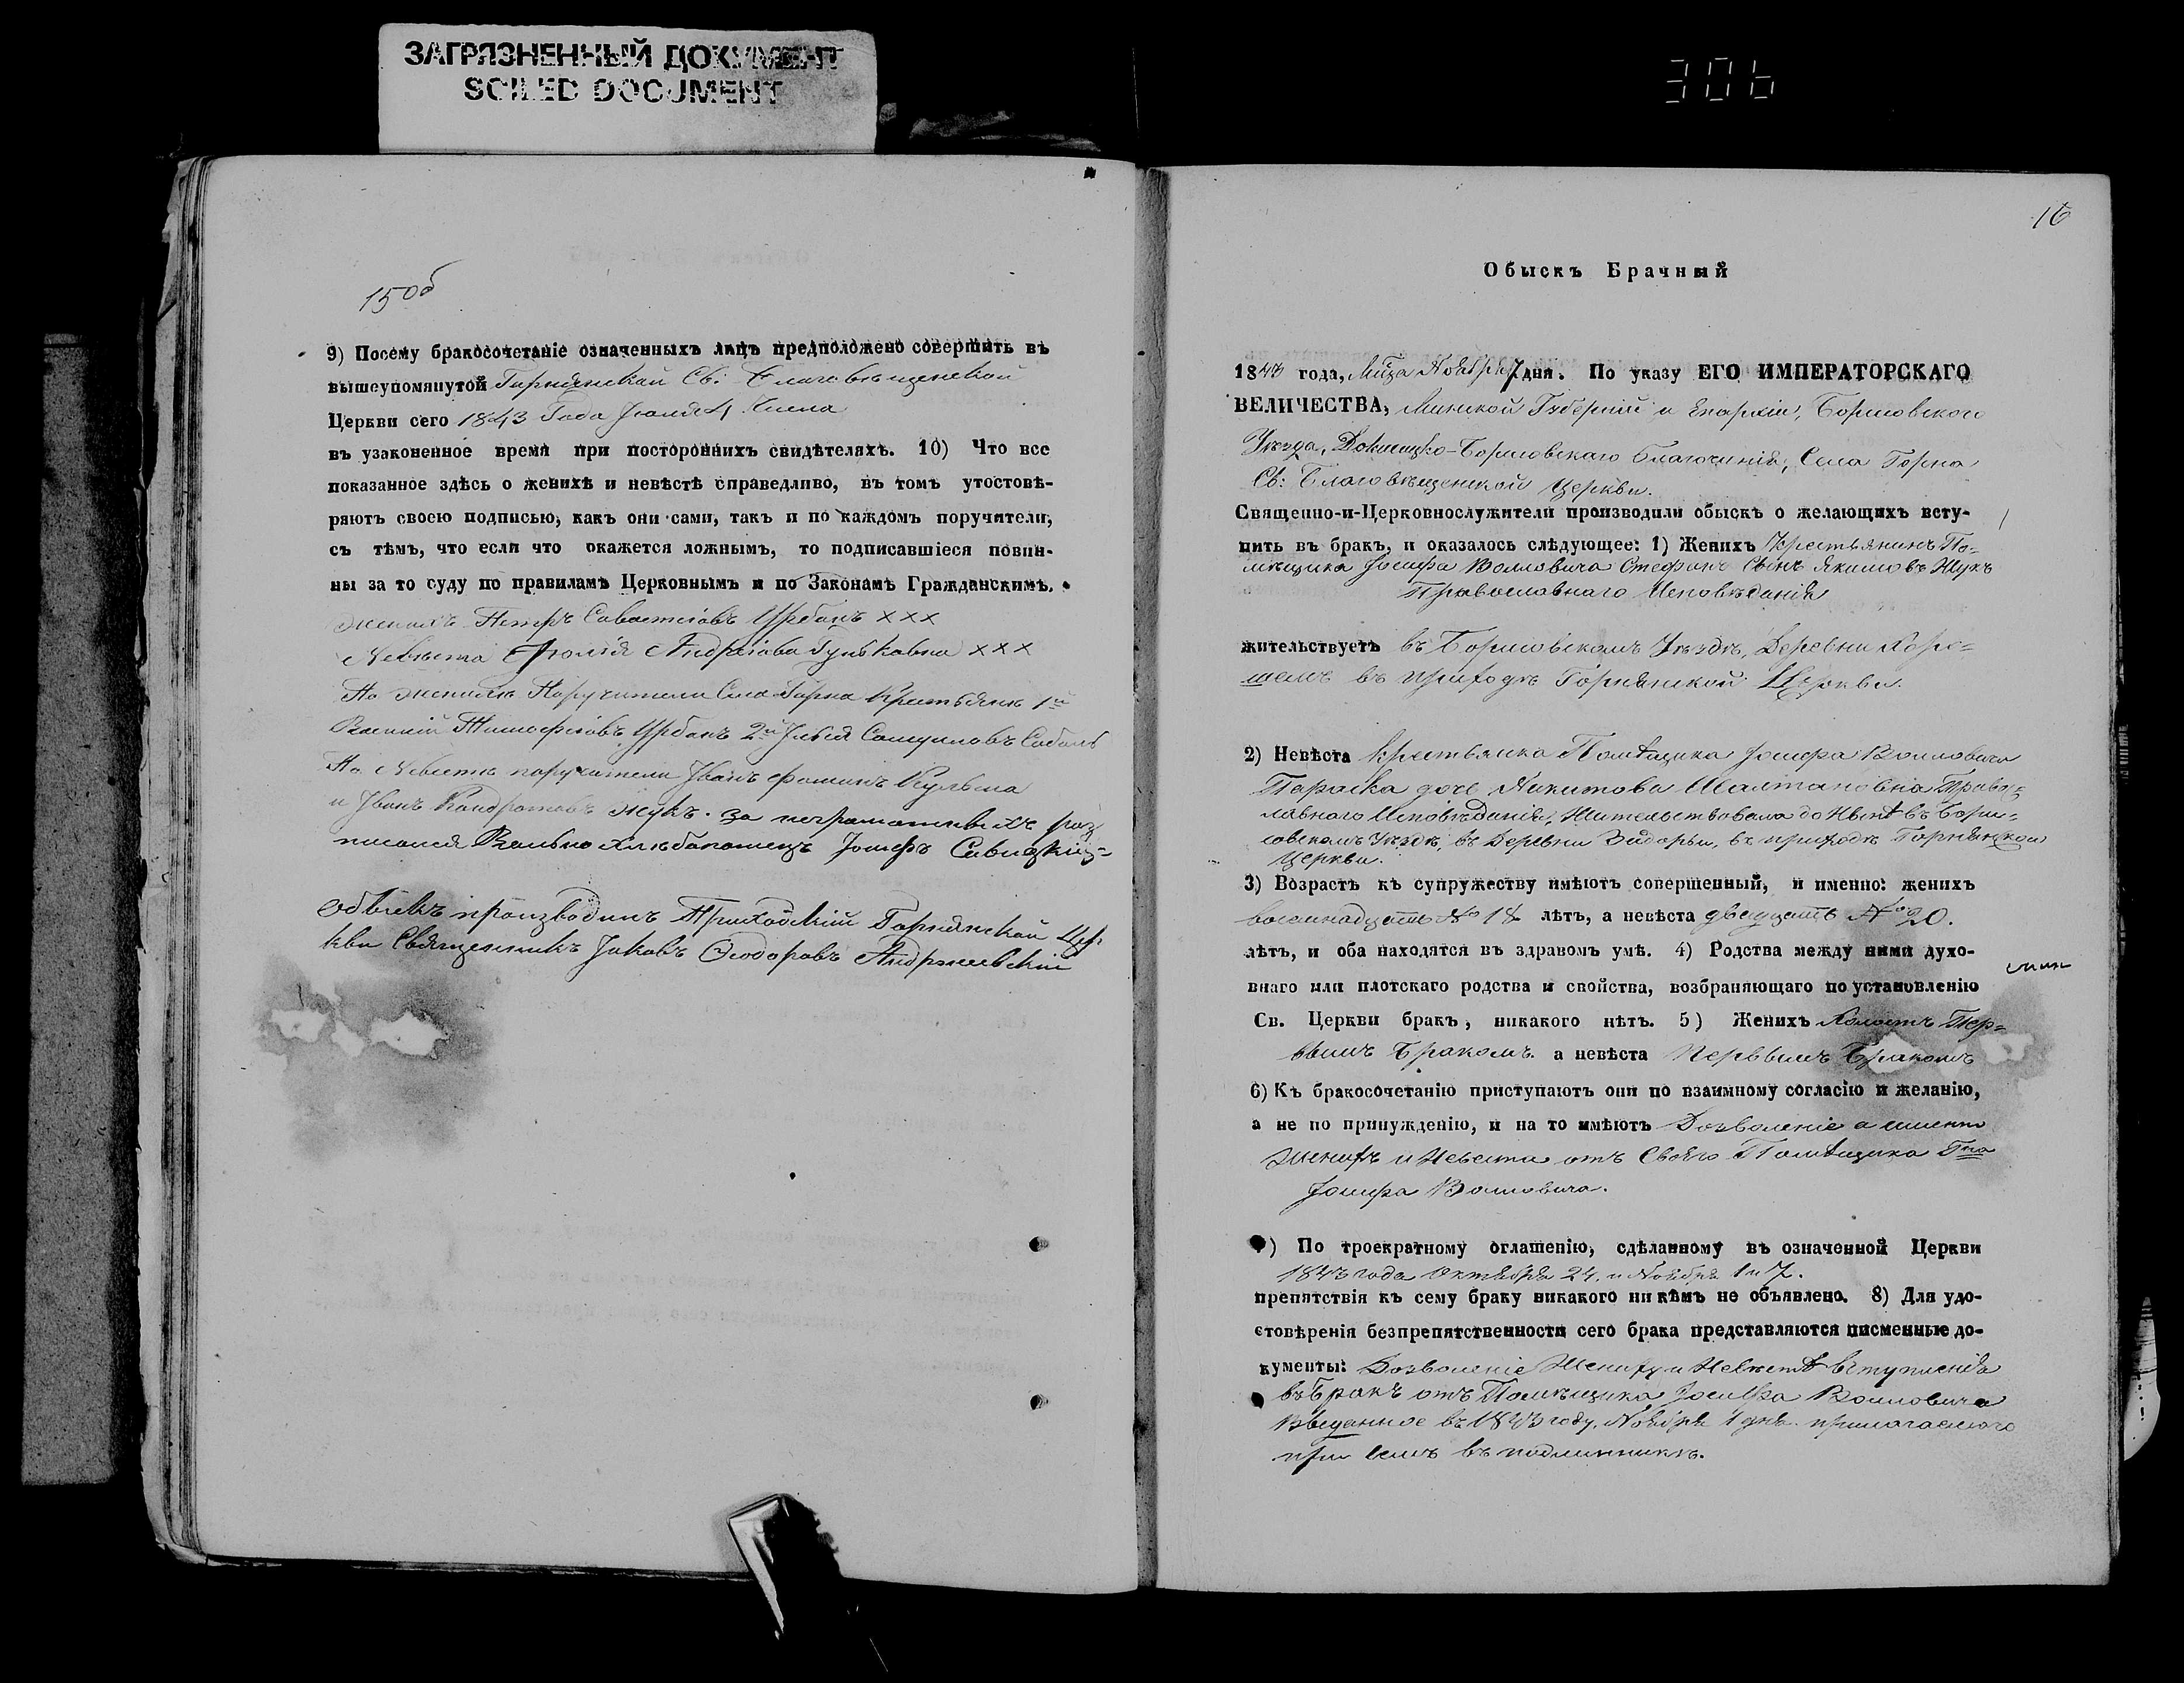 ЗАГРЯЗНЕННЫЙ ДОКУМЕНТ
SOILED DOCUMENT
306
15об
9) Посему бракосочетаніе означенныхъ лицъ предположено совершить въ
вышеупомянутой Горнянской Св: Благовѣщенской
Церкви сего 1843 Года Числа
въ узаконенное время при постороннихъ свидѣтеляхъ. 10) Что все
показанное здѣсь о женихѣ и невѣстѣ справедливо, въ томъ утостовѣ-
ряютъ своею подписью, какъ они сами, такъ и по каждомъ поручители,
съ тѣмъ, что если что окажется ложнымъ, то подписавшіеся повин-
ны за то суду по правиламъ Церковнымъ и по Законамъ Гражданскимъ.
женихъ Петръ Савостіовъ Урбанъ ххх
Невѣста Андреіова ххх
По женихѣ Поручители Села Горна Крестьяне 1й
Тимофеіовъ Урбанъ 2й Илья Самуиловъ
По Невестѣ поручители Іванъ Фоминъ
и Іванъ Кондратовъ Жукъ. за неграматныхъ роз
писался Вольно хлѣбопашецъ Іосифъ Савицкій
Обыскъ производилъ Приходскій Горнянской Цер
кви Священникъ Іаковъ Ѳеодоровъ Андржеевскій
16
Обыскъ Брачный
1843 года, Ноября 7 дня. По указу ЕГО ИМПЕРАТОРСКАГО
ВЕЛИЧЕСТВА, Минской Губерніи и Епархіи, Борисовского
Уѣзда, Докшицко-Борисовскаго благочинія, Села Горна
Св: Благовѣщенской Церкви.
Священно-и-Церковнослужители производили обыскъ о желающихъ всту-
пить въ бракъ, и оказалось слѣдующее: 1) Женихъ Крестьянинъ По-
мѣщика Іосифа Воловича Стефанъ Сынъ Якимовъ Жукъ
Православнаго Исповѣданія
жительствуетъ въ Борисовскомъ Уѣздѣ, Деревни
въ приходѣ Горнянской Церкви.
2) Невѣста Крестьянка Помѣщика Іосифа Воловича
Параска доче Никитова Православ-
лавнаго Исповѣданія, Жительствовала до Нынѣ въ Бори-
совскомъ Уѣздѣ, въ Деревни въ приходѣ Горнянской
Церкви.
3) Возрастъ къ супружеству имѣютъ совершенный, и именно: женихъ
восемнадцать № 18 лѣтъ, а невѣста двадцать № 20.
лѣтъ, и оба находятся въ здравомъ умѣ. 4) Родства между ними духо-
внаго или плотскаго родства и свойства, возбраняющаго по установленію
Св. Церкви бракъ, никакого нѣтъ. 5) Женихъ Холостъ Пер-
вымъ Бракомъ. а невѣста Первымъ Бракомъ
6) Къ бракосочетанію приступаютъ они по взаимному согласію и желанію,
а не по принужденію, и на то имѣютъ Дозволеніе а именно
Женихъ и Невеста отъ Своего Помѣщика Гна
Іосифа Воловича.
7) По троекратному оглашенію, сдѣланному въ означенной Церкви
1843 года Октября 24. и Ноября 1 и 7.
препятствія къ сему браку никакого никѣмъ не объявлено. 8) Для удо-
стовѣренія безпрепятственности сего брака представляются писменные до-
кументы: Дозволеніе Жениху и Невѣстѣ вступленія
въ Бракъ отъ Помѣщика Іосифа Воловича
въ 1843 году. Ноября 1 дня. прилагаемого
при семъ въ подлинникѣ.